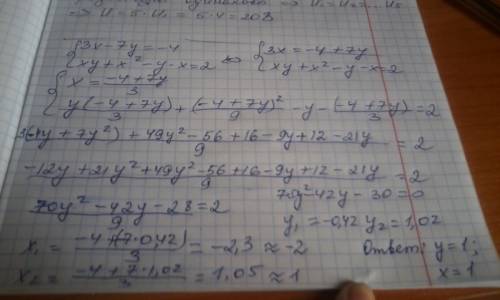 одинаково => U₁=U₂=...U₅
=> U=5·U₁=5·4=20В
{3x-7y=-4 <=> {3x=-4+7y
{xy+x²-y-x=2 {xy+x²-y-x=2
{x=(-4+7y)/3
{y(-4+7y)/3+(-4+7y)²/9-y-(-4+7y)/3=2
3(-4y+7y²)+49y²-56+16-9y+12-21y/9=2
-12y+21y²+49y²-56+16-9y+12-21y/9=2
70y²-42y-28/9=2 70y²-42y-30=0
y₁=-0,42 y₂=1,02
x₁=(-4+(7·0,42))/3=-2,3≈-2 Ответ: y=1;
x₂=(-4+7·1,02)/3=1,05≈1 x=1